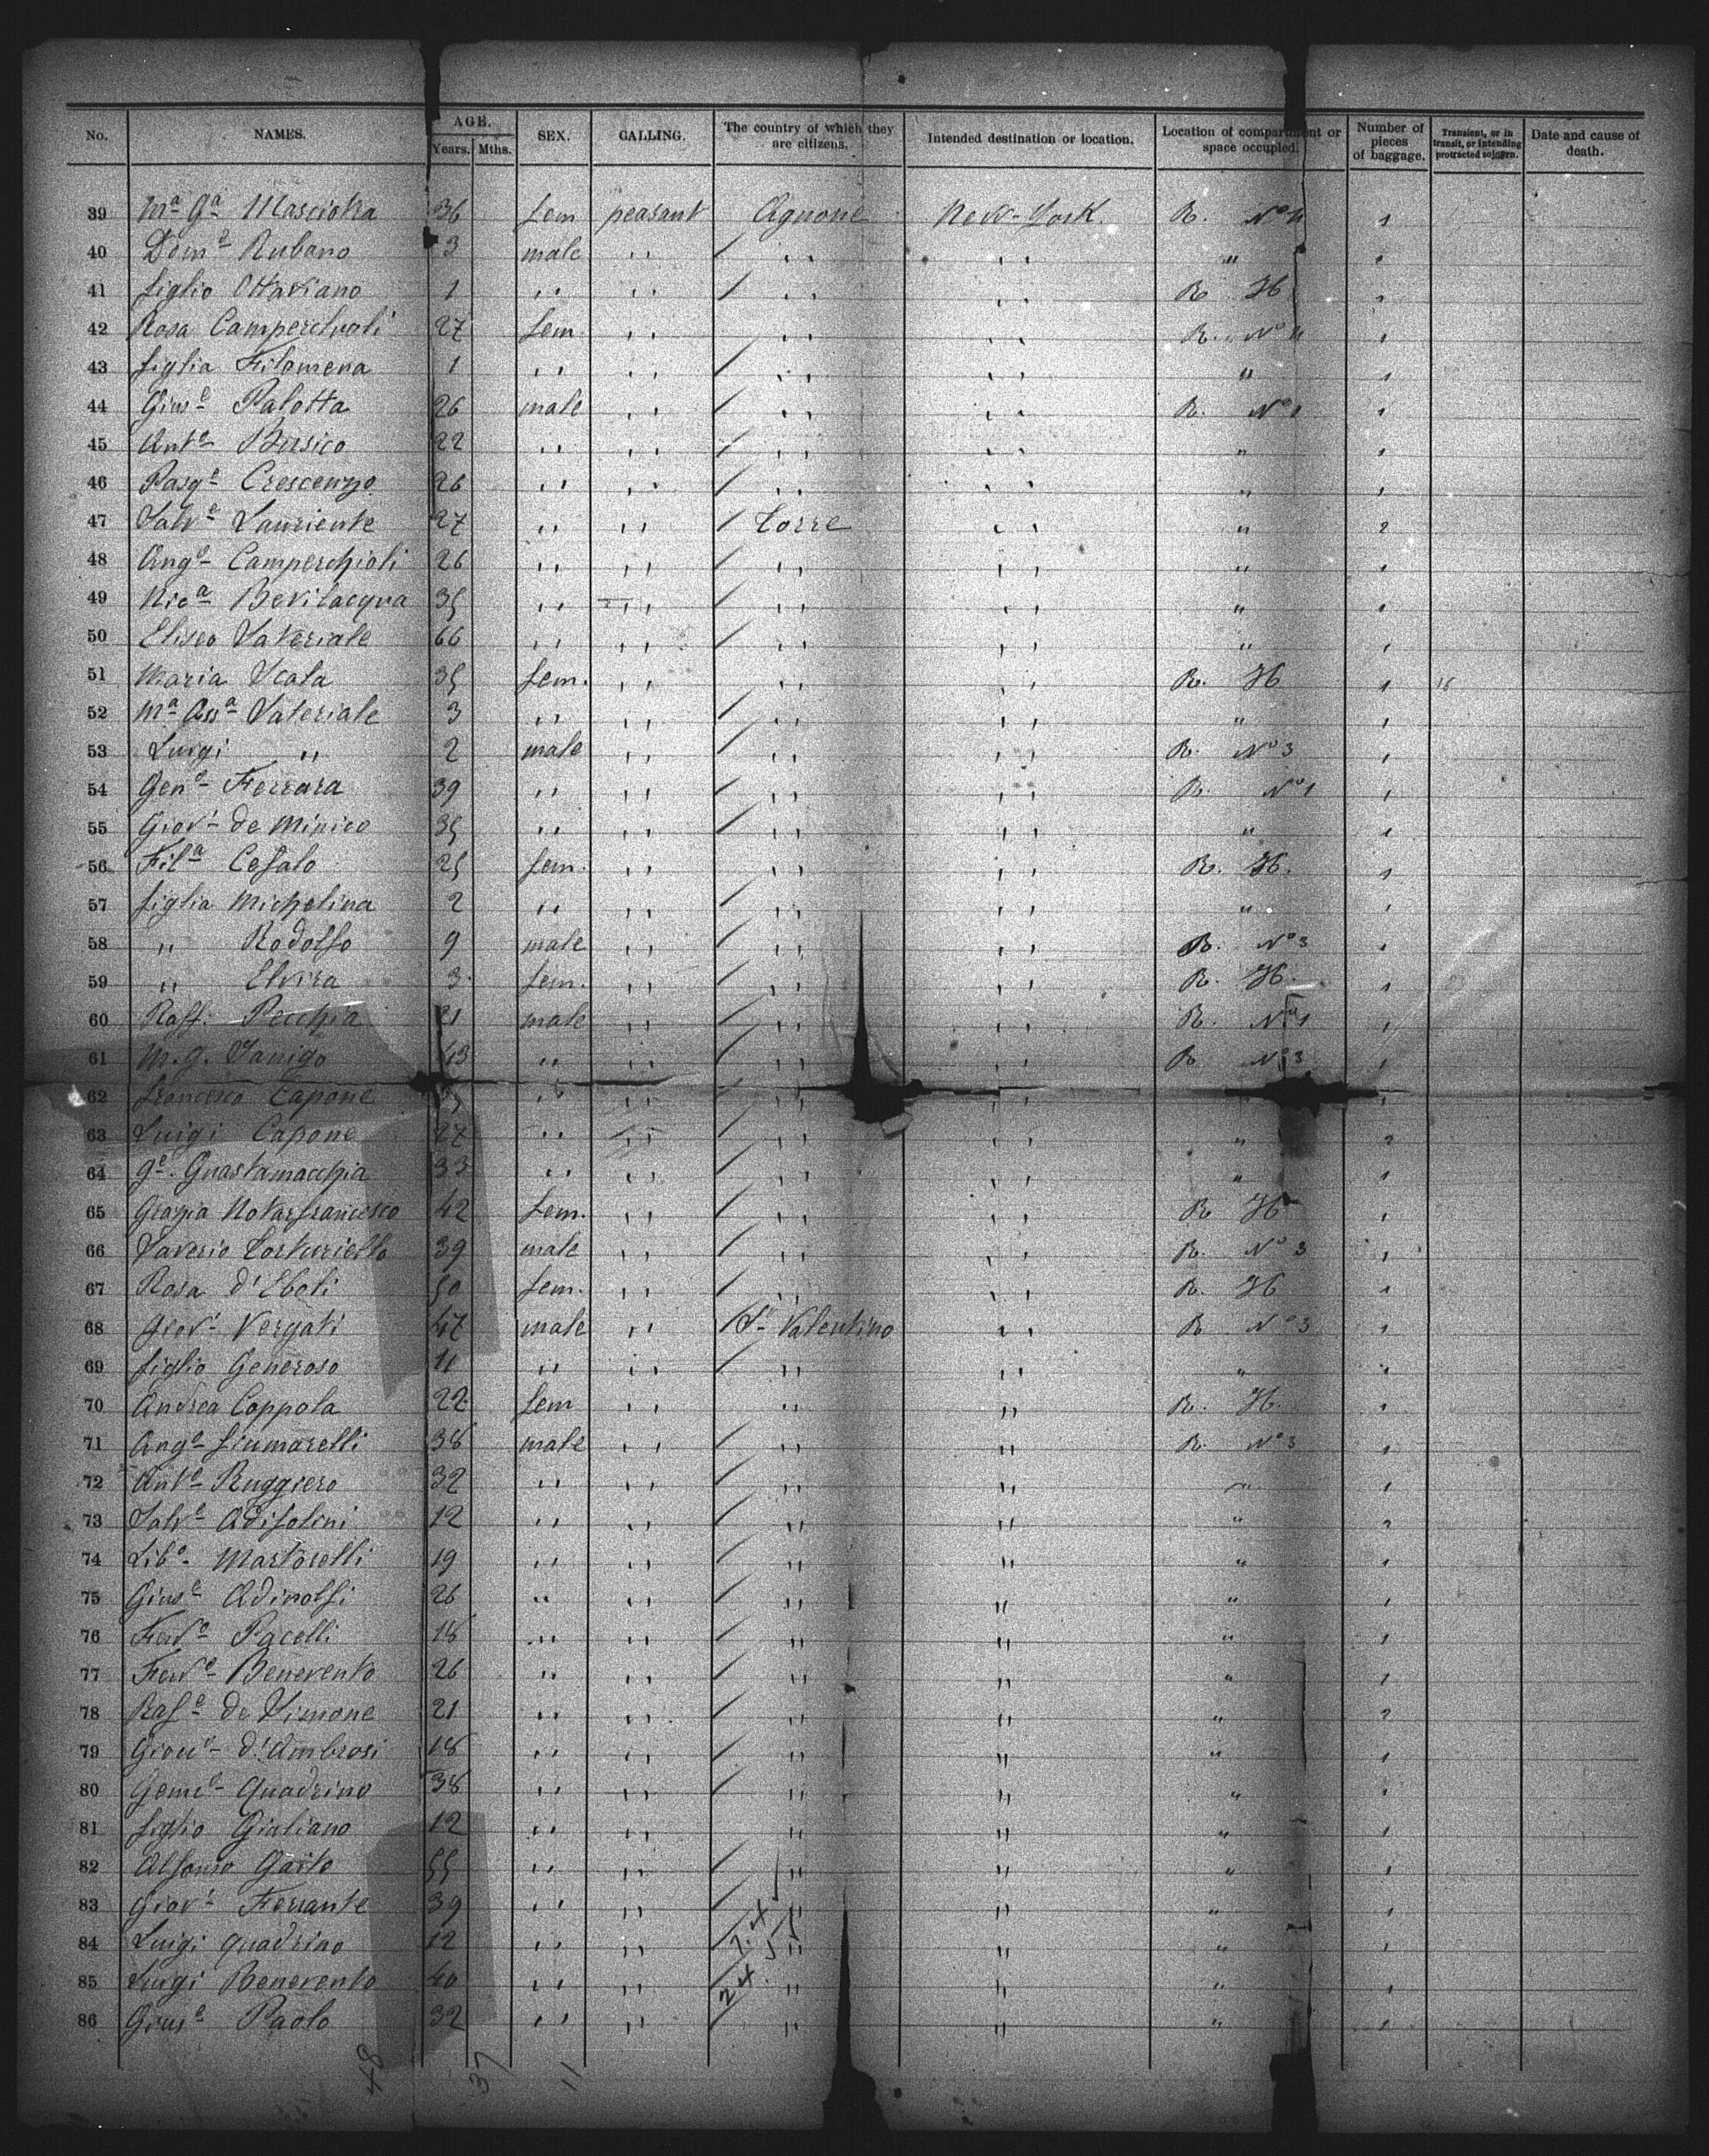 No. NAMES. AGE. Years. Mths. SEX. CALLING. The country of which they are citizens. Intended destination or location. Location of compartment or space occupied. Number of pieces of baggage. Transient, or in transit, or intending protracted sojourn. Date and cause of death.
39 Ma Ga Masciotra 36 fem peasant Agnone New-York R. No 4 1
40 Domo Rubano 3 male " " " "
41 figlio Ottaviano 1 " " " " R H "
42 Rosa Camperchioli 27 fem " " " R. No 4 1
43 figlia Filomena 1 " " " " " 1
44 Giuse Palotta 26 male " " " R. No 1 1
45 Anto Busico 22 " " " " " 1
46 Pasqe Crescenzo 26 " " " " " 1
47 Salve Lauriente 27 " " Torre " " 2
48 Ango Camperchioli 26 " " " " " 1
49 Nica Bevilacqua 35 " " " " " 1
50 Eliseo Saveriale 66 " " " " " 1
51 Maria Scala 35 fem. " " " R. H 1
52 Ma Assa Sateriale 3 " " " " " 1
53 Luigi " 2 male " " " R. No 3 1
54 Geno Ferrara 39 " " " " R. No 1 1
55 Giovi de Minico 35 " " " " " 1
56 Fila Cefalo 25 fem. " " " R. H. 1
57 figlia Michelina 2 " " " " " 1
58 " Rodolfo 9 male " " " R. No 3 1
59 " Elvira 3 fem. " " " R. H. 1
60 Raff. Pecchia 21 male " " " R. No 1 1
61 M. G. Sanigo 43 " " " " R No 3 1
62 francesco Capone " " " " "
63 Luigi Capone 27 " " " " " 2
64 Ge. Guastamacchia 33 " " " " " 1
65 Grazia Notarfrancesco 42 fem. " " " R H 1
66 Saverio Torturiello 39 male " " " R. No 3 1
67 Rosa d'Eboli 50 fem. " " " R. H 1
68 Giovi Vergati 47 male " Sn Valentino " R No 3 1
69 figlio Generoso 11 " " " " " "
70 Andrea Coppola 22 fem " " " R. H. 1
71 Ango fiumarelli 38 male " " " R. No 3 1
72 Anto Ruggiero 32 " " " " " 1
73 Salve Adifolini 12 " " " " " 2
74 Libo Martorelli 19 " " " " " 1
75 Giuse Adinolfi 26 " " " " " 1
76 Ferde Pacelli 18 " " " " " 1
77 Ferde Benevento 26 " " " " " 1
78 Rafe de Simone 21 " " " " " 2
79 Giove d'Ambrosi 18 " " " " " 1
80 Geme Quadrino 38 " " " " " 1
81 figlio Giuliano 12 " " " " " 1
82 Alfonso Gaito 55 " " " " " 1
83 Giovi Ferrante 39 " " " " " 1
84 Luigi quadrino 12 " " " " " 1
85 Luigi Benevento 40 " " " " " 1
86 Giuse Paolo 32 " " " " " 1
48 37 11